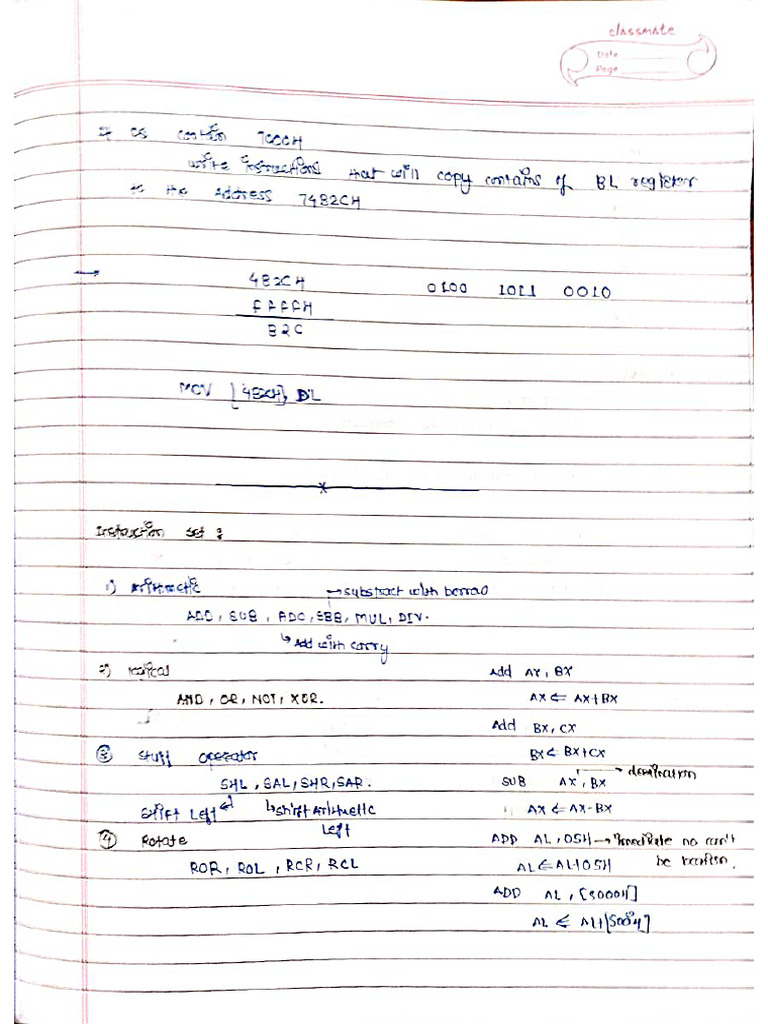 classmate
Date
Page
If DS contain 7000H
write instructions that will copy contains of BL register
to the Address 7482CH
→ 482CH 0100 1011 0010
FFFFH
B2C
MOV [482CH], BL
x
Instruction set :
1) Arithmetic → substract with borrao
ADD, SUB, ADC, SBB, MUL, DIV.
↳ Add with carry
2) logical Add AX, BX
AND, OR, NOT, XOR. AX ⇐ AX+BX
Add BX, CX
③ Shift operator BX ⇐ BX+CX
SHL, SAL, SHR, SAR. SUB AX, BX → destination
Shift Left ↳ Shift Arithmetic Left AX ⇐ AX-BX
④ Rotate ADD AL, 05H → Immediate no can't be
ROR, ROL, RCR, RCL AL ⇐ AL+05H
ADD AL, [5000H]
AL ⇐ AL+[5000H]